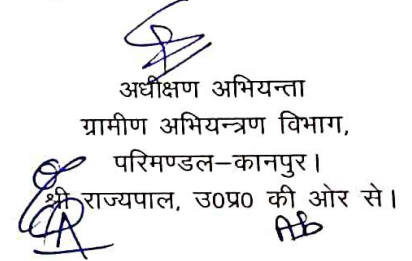 अधीक्षण अभियन्ता
ग्रामीण अभियन्त्रण विभाग,
परिमण्डल–कानपुर।
श्री राज्यपाल, उ0प्र0 की ओर से।